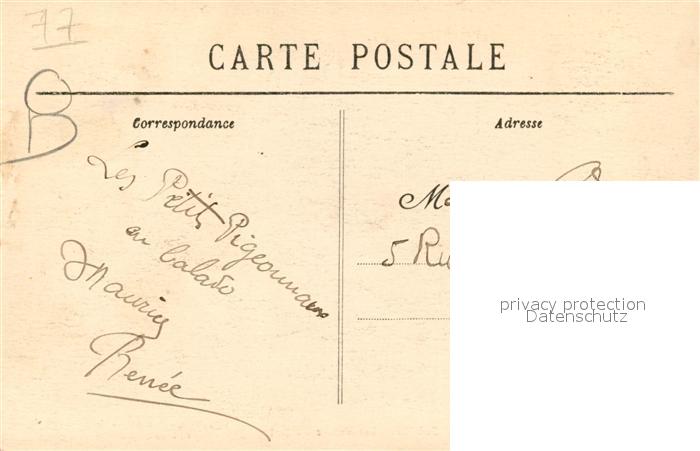 77
B
CARTE POSTALE
Correspondance
Les Petits Pigeonneaux
en balade
Maurice
Renée
Adresse
5 Ru
privacy protection
Datenschutz